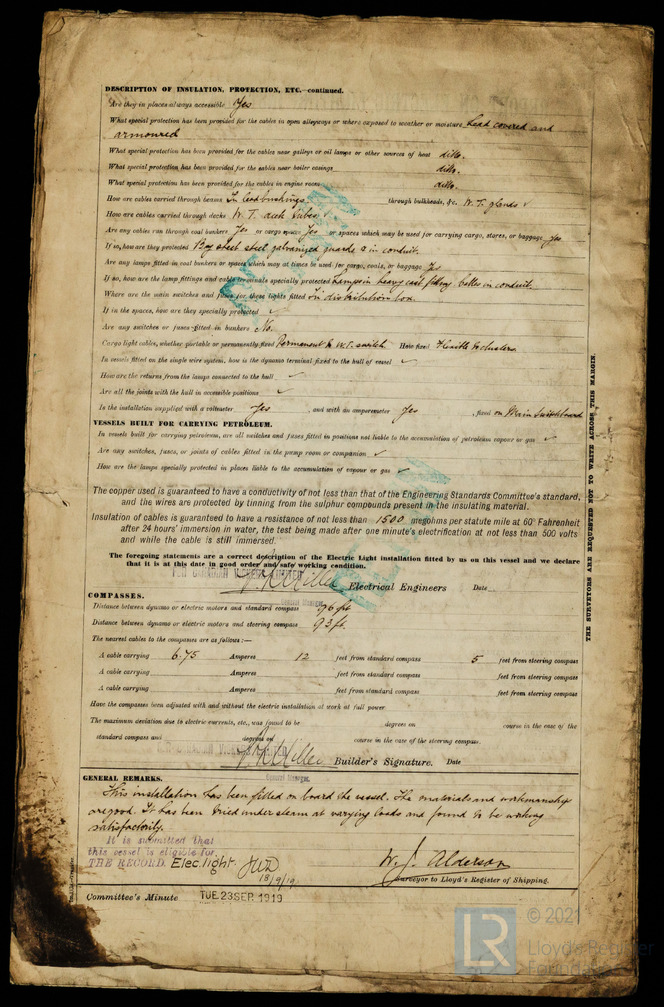 DESCRIPTION OF INSULATION, PROTECTION, ETC.—continued.
Are they in places always accessible Yes
What special protection has been provided for the cables in open alleyways or where exposed to weather or moisture Lead covered and
armoured
What special protection has been provided for the cables near galleys or oil lamps or other sources of heat ditto.
What special protection has been provided for the cables near boiler casings ditto.
What special protection has been provided for the cables in engine room ditto.
How are cables carried through beams In lead bushings through bulkheads, &c. W. T. glands ✓
How are cables carried through decks W. T. deck tubes
Are any cables run through coal bunkers Yes or cargo spaces Yes or spaces which may be used for carrying cargo, stores, or baggage Yes
If so, how are they protected By sheet steel galvanized guards & in conduit.
Are any lamps fitted in coal bunkers or spaces which may at times be used for cargo, coals, or baggage Yes
If so, how are the lamp fittings and cable terminals specially protected Lamps in heavy cast fittings cables in conduit.
Where are the main switches and fuses for these lights fitted In distribution box.
If in the spaces, how are they specially protected ✓
Are any switches or fuses fitted in bunkers No.
Cargo light cables, whether portable or permanently fixed Permanent to W.T. switch How fixed
In vessels fitted on the single wire system, how is the dynamo terminal fixed to the hull of vessel ✓
How are the returns from the lamps connected to the hull ✓
Are all the joints with the hull in accessible positions ✓
Is the installation supplied with a voltmeter Yes , and with an amperemeter Yes , fixed on Main Switchboard
VESSELS BUILT FOR CARRYING PETROLEUM.
In vessels built for carrying petroleum, are all switches and fuses fitted in positions not liable to the accumulation of petroleum vapour or gas ✓
Are any switches, fuses, or joints of cables fitted in the pump room or companion ✓
How are the lamps specially protected in places liable to the accumulation of vapour or gas ✓
The copper used is guaranteed to have a conductivity of not less than that of the Engineering Standards Committee's standard,
and the wires are protected by tinning from the sulphur compounds present in the insulating material.
Insulation of cables is guaranteed to have a resistance of not less than 1500 megohms per statute mile at 60° Fahrenheit
after 24 hours' immersion in water, the test being made after one minute's electrification at not less than 500 volts
and while the cable is still immersed.
The foregoing statements are a correct description of the Electric Light installation fitted by us on this vessel and we declare
that it is at this date in good order and safe working condition.
Miller Electrical Engineers Date
General Manager.
COMPASSES.
Distance between dynamo or electric motors and standard compass 96 ft
Distance between dynamo or electric motors and steering compass 93 ft.
The nearest cables to the compasses are as follows:—
A cable carrying 6.75 Amperes 12 feet from standard compass 5 feet from steering compass
A cable carrying Amperes feet from standard compass feet from steering compass
A cable carrying Amperes feet from standard compass feet from steering compass
Have the compasses been adjusted with and without the electric installation at work at full power
The maximum deviation due to electric currents, etc., was found to be degrees on course in the case of the
standard compass and degrees on course in the case of the steering compass.
Miller Builder's Signature. Date
General Manager.
GENERAL REMARKS.
This installation has been fitted on board the vessel. The materials and workmanship
are good. It has been tried under steam at varying loads and found to be working
satisfactorily.
It is submitted that
this vessel is eligible for
THE RECORD. Elec. light.
18/9/19
W. J. Alderson
Surveyor to Lloyd's Register of Shipping.
Committee's Minute TUE. 23 SEP. 1919
THE SURVEYORS ARE REQUESTED NOT TO WRITE ACROSS THIS MARGIN.
LR
© 2021
Lloyd's Register
Foundation